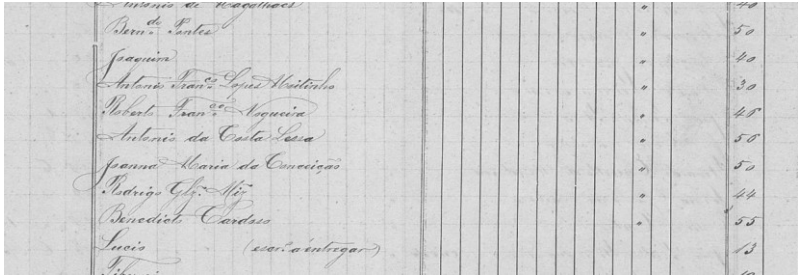 Antonio de Magalhães " 40
Bern.de Pontes " 50
Joaquim " 40
Antonio Fran.co Lopes Meitinho " 30
Roberto Fran.co Nogueira " 46
Antonio da Costa Lessa " 56
Joanna Maria da Conceição " 50
Rodrigo Glz. Miz " 44
Benedicto Cardoso " 55
Lucio (escr.o a entregar) 13